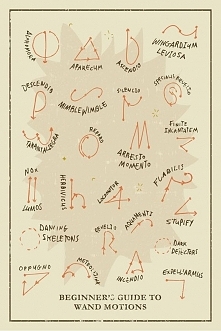 ALOHOMORA
APARECIUM
ASCENDIO
WINGARDIUM
LEVIOSA
DESCENDIO
MUMBLEWIMBLE
SILENCIO
SPECIALIS REVELIO
TARANTALLEGRA
REPARO
ARRESTO
MOMENTO
FINITE
INCANTATEM
NOX
LUMOS
HERBIVICUS
LOCOMOTOR
FLAGILIS
DANCING
SKELETONS
REVELIO
AQUAMENTI
STUPIFY
OPPUGNO
METEOLOJINX
INCENDIO
DARK
DETECTORS
EXPELLIARMUS
BEGINNER'S GUIDE TO
WAND MOTIONS